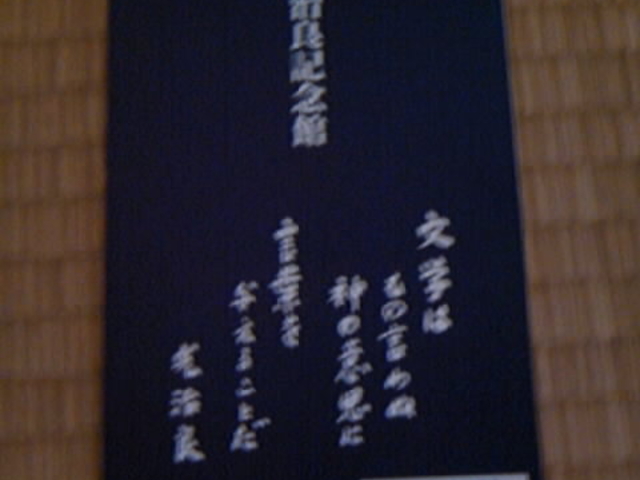 治良記念館
文学は
もの言わぬ
神の意思に
言葉を
与えることだ
光治良